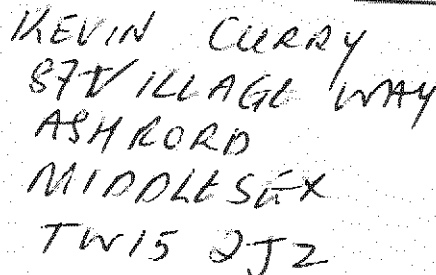 KEVIN CURRY
87 VILLAGE WAY
ASHFORD
MIDDLESEX
TW15 2JZ